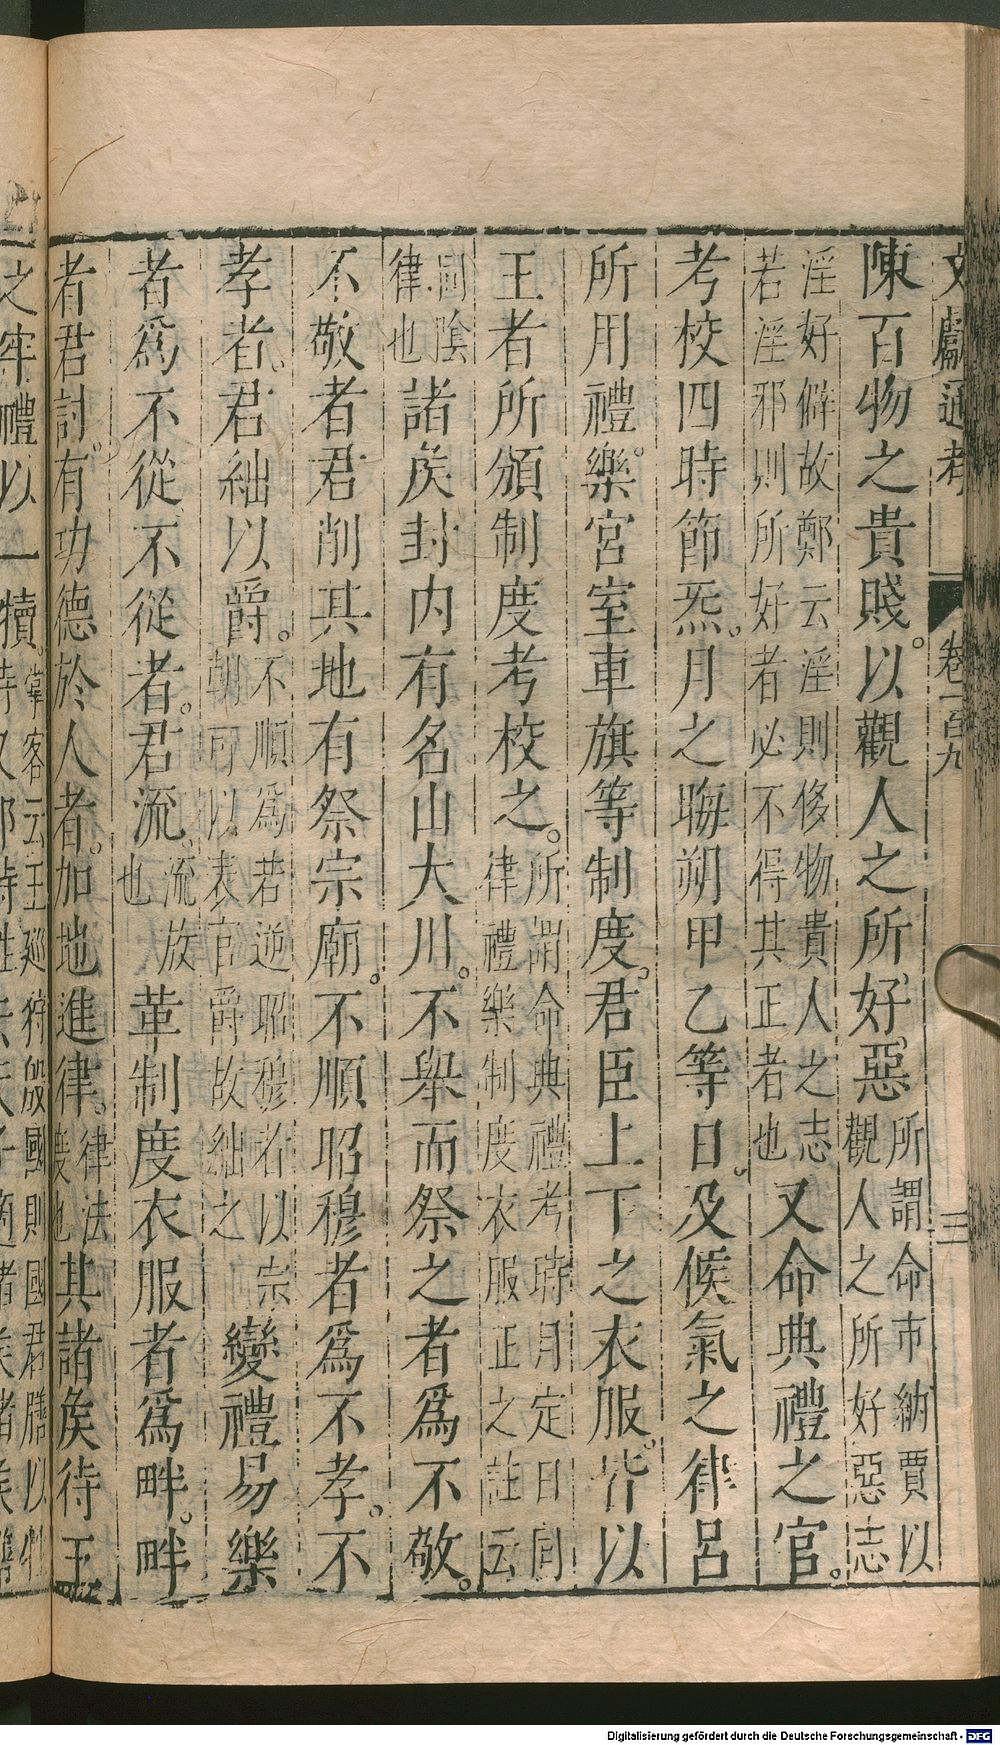 文獻通考 卷一百九 三
陳百物之貴賤。以觀人之所好惡。所謂命市納賈以觀人之所好惡志
淫好僻故鄭云淫則侈物貴人之志若淫邪則所好者必不得其正者也又命典禮之官。
考校四時節炁。月之晦朔甲乙等日。及候氣之律呂
所用禮樂。宮室車旗等制度。君臣上下之衣服。皆以
王者所頒制度考校之。所謂命典禮考時月定日同律禮樂制度衣服正之註云
同陰律也諸矦封内有名山大川。不舉而祭之者爲不敬。
不敬者君削其地有祭宗廟。不順昭穆者爲不孝。不
孝者。君絀以爵。不順爲若逆昭穆右以宗朝可以表官爵故絀之變禮易樂
者爲不從不從者。君流。流放也革制度衣服者爲畔。畔
者君討。有功德於人者。加地進律。律法度也其諸矦待王
之牢禮以一犢。掌客云王巡狩殷國則國君膳以牲
Digitalisierung gefördert durch die Deutsche Forschungsgemeinschaft - DFG